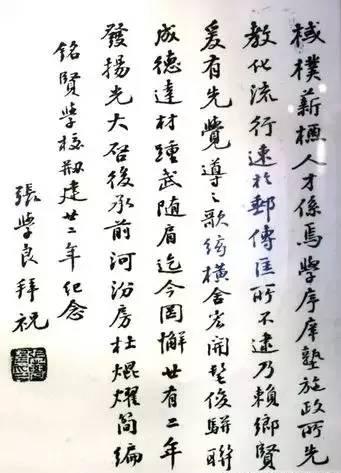 棫樸薪槱人才係焉學序庠塾施政所先
教化流行速於郵傳匡所不逮乃賴鄉賢
爰有先覺導之歌絃橫舍宏開髦俊駢聯
成德達材踵武隨肩迄今罔懈廿有二年
發揚光大启後承前河汾房杜焜燿簡編
銘賢學校刱建廿二年紀念
張學良拜祝